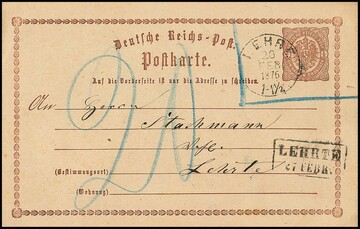 Deutsche Reichs-Post.
Postkarte.
Auf die Vorderseite ist nur die Adresse zu schreiben.
LEHRTE
26
FEB
1876
7-1¼
An Herrn
Stackmann
20
Lehrte
LEHRTE
27 FEBR.
(Bestimmungsort)
(Wohnung)